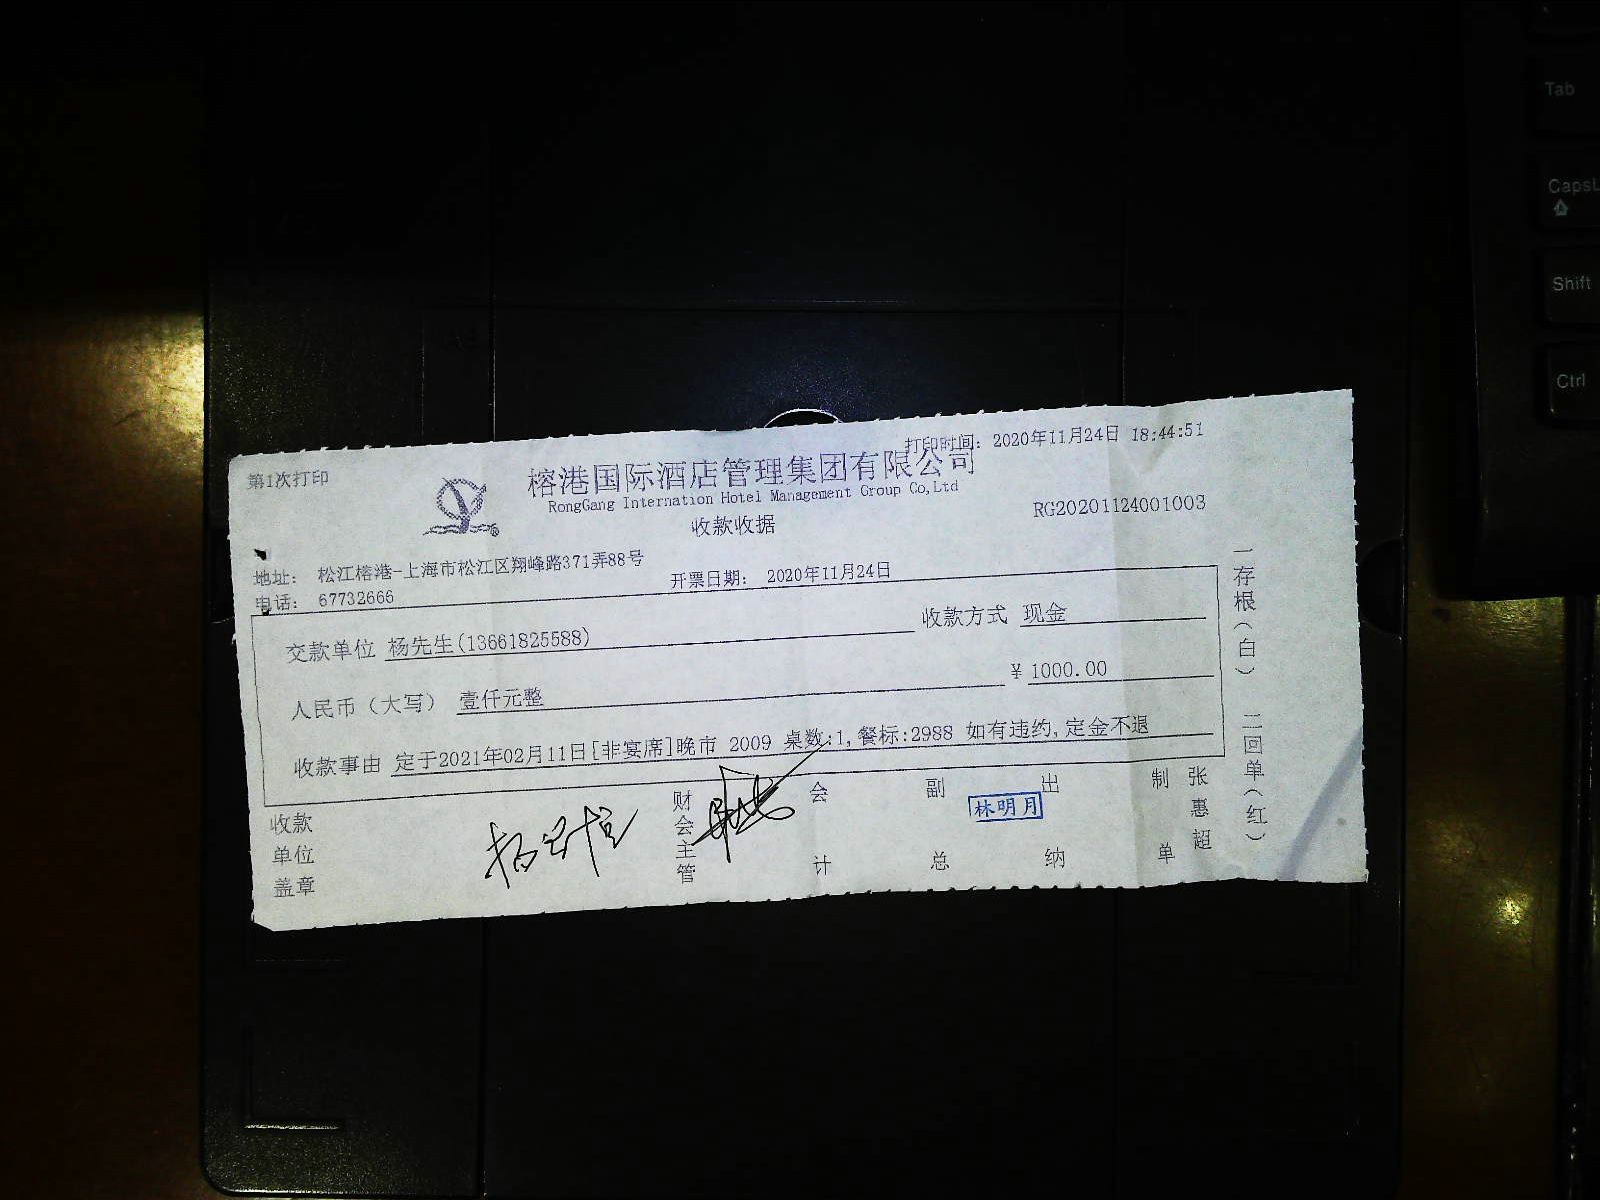 第1次打印
打印时间: 2020年11月24日 18:44:51
榕港国际酒店管理集团有限公司
RongGang Internation Hotel Management Group Co,Ltd
收款收据
RG20201124001003
地址: 松江榕港-上海市松江区翔峰路371弄88号
电话: 67732666
开票日期: 2020年11月24日
交款单位 杨先生(13661825588)
收款方式 现金
人民币（大写） 壹仟元整
¥ 1000.00
收款事由 定于2021年02月11日[非宴席]晚市 2009 桌数:1,餐标:2988 如有违约,定金不退
收款单位盖章
财会主管
会计
副总
出纳
林明月
制单
张惠超
一存根（白） 二回单（红）
Tab
CapsL
Shift
Ctrl